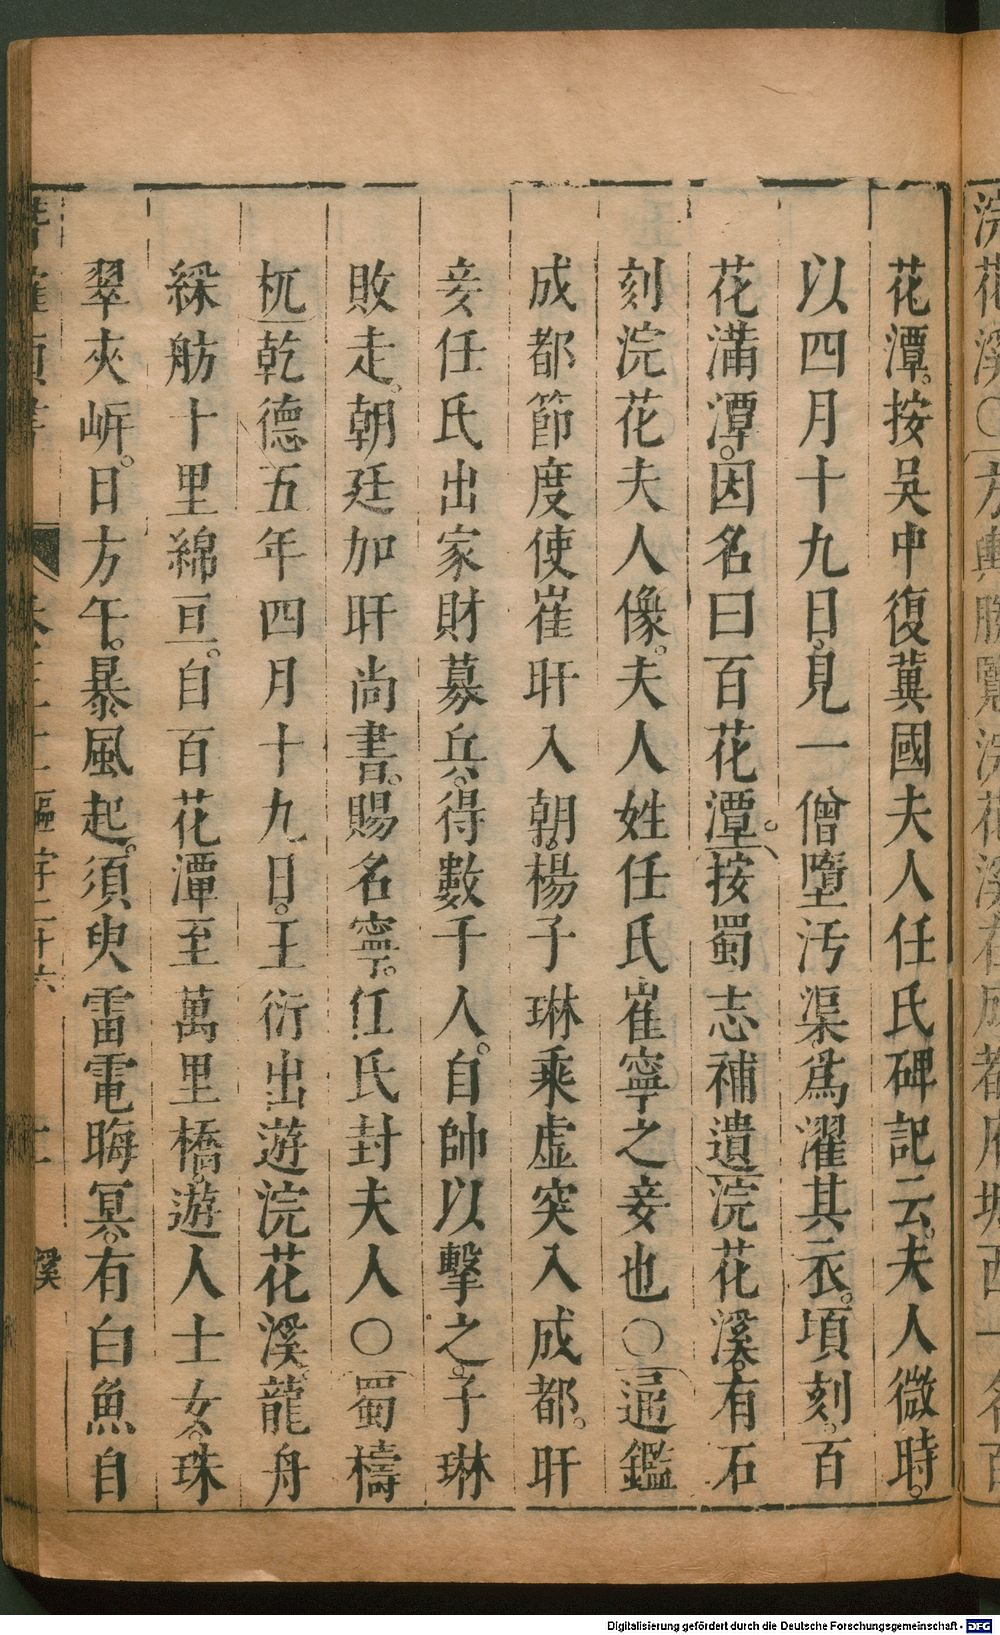 花潭。按吳中復冀國夫人任氏碑記云。夫人微時。
以四月十九日。見一僧墮汚渠爲濯其衣。頃刻。百
花滿潭。因名曰百花潭。按蜀志補遺浣花溪。有石
刻浣花夫人像。夫人姓任氏崔寧之妾也○通鑑
成都節度使崔旰入朝。楊子琳乘虛突入成都。旰
妾任氏出家財募兵。得數千人。自帥以擊之。子琳
敗走。朝廷加旰尚書。賜名寧。任氏封夫人○蜀檮
杌乾德五年四月十九日。王衍出遊浣花溪。龍舟
綵舫十里綿亘。自百花潭至萬里橋。遊人士女。珠
翠夾岍。日方午。暴風起。須臾雷電晦冥。有白魚自
溪
Digitalisierung gefördert durch die Deutsche Forschungsgemeinschaft - DFG